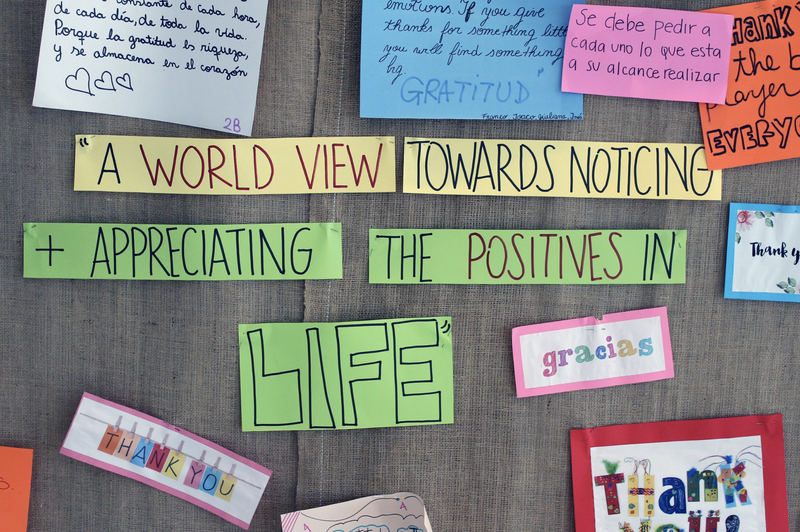 constante de cada hora,
de cada día, de toda la vida.
Porque la gratitud es riqueza,
y se almacena en el corazón
2B
emotions. If you give
thanks for something little
you will find something
big.
GRATITUD
Se debe pedir a
cada uno lo que esta
a su alcance realizar
THANK
the
player
EVERYO
"A WORLD VIEW TOWARDS NOTICING
+ APPRECIATING THE POSITIVES IN
LIFE"
Thank y
gracias
THANK YOU
THANK